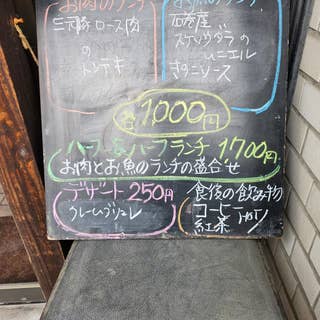 お肉のランチ
三元豚ロース肉
の
トンテキ
お魚のランチ
石巻産
スケソウダラの
ムニエル
きのこソース
各1000円
ハーフ&ハーフランチ 1,700円
お肉とお魚のランチの盛合せ
デザート 250円
クレームブリュレ
食後の飲み物
コーヒー
紅茶
HOT